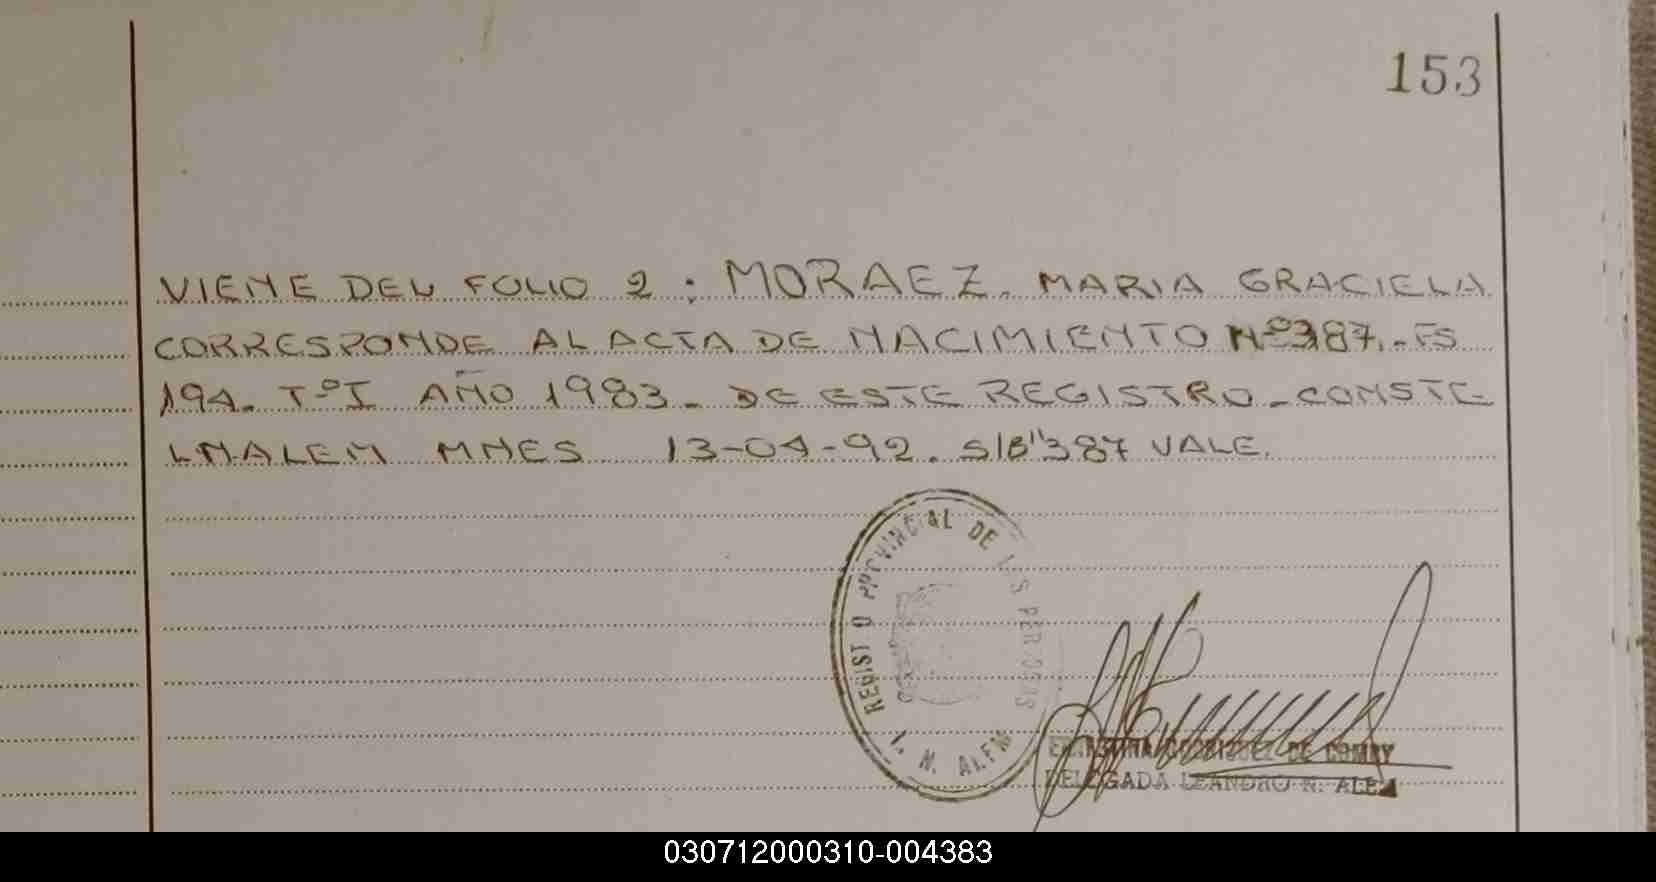 153
VIENE DEL FOLIO 2 : MORAEZ. MARIA GRACIELA
CORRESPONDE AL ACTA DE NACIMIENTO Nº387.-FS
194. TºI AÑO 1983.- DE ESTE REGISTRO-CONSTE
L.N.ALEM MNES 13-04-92. S/B"387 VALE.
REGISTRO PROVINCIAL DE LAS PERSONAS
L. N. ALEM
RODRIGUEZ DE
DELEGADA LEANDRO N. ALEM
030712000310-004383